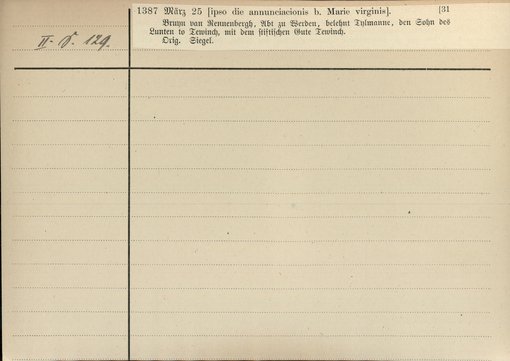 1387 März 25 [ipso die annunciacionis b. Marie virginis]. [31
Bruyn van Rennenbergh, Abt zu Werden, belehnt Tylmanne, den Sohn des
Lunten to Tewinch, mit dem stiftischen Gute Tewinch.
Orig. Siegel.
II. 129.